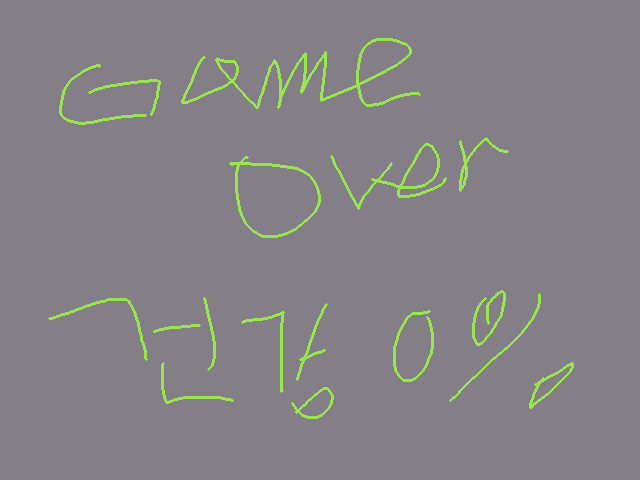 Game
Over
건강 0%